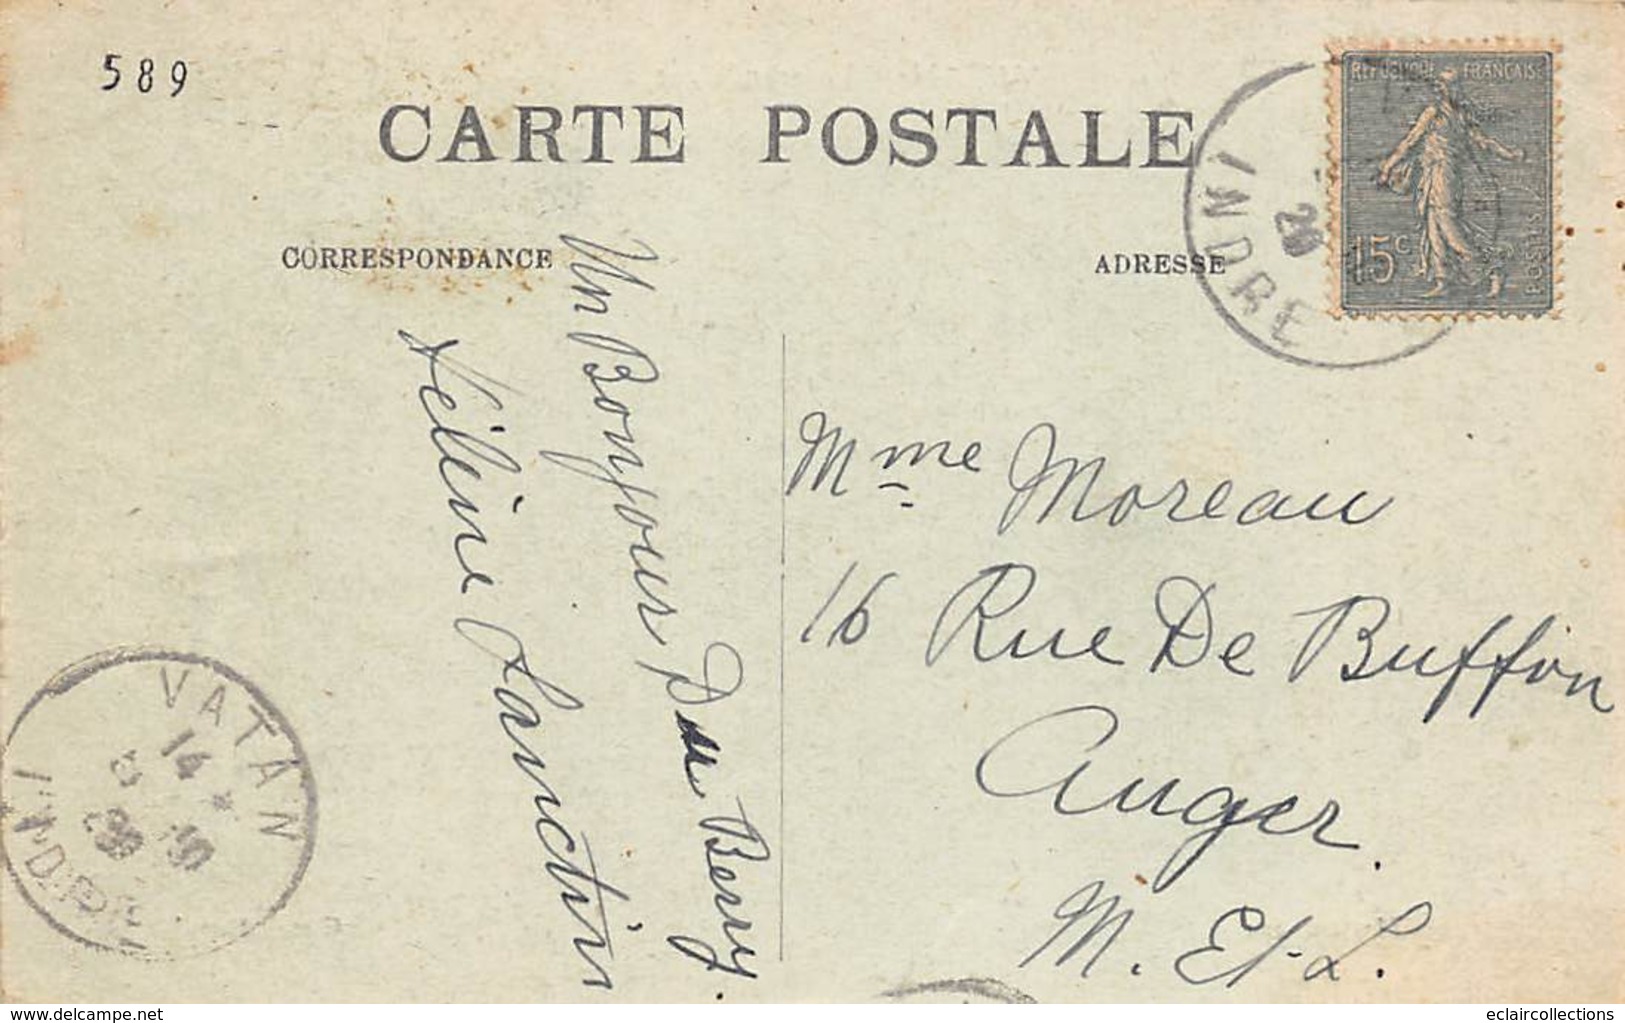 589
CARTE POSTALE
CORRESPONDANCE
ADRESSE
REPUBLIQUE FRANÇAISE
15c
POSTES
INDRE
29
Un Bonjour Du Berry.
Mme Moreau
16 Rue De Buffon
Anger
M. Et-L.
VATAN
14
INDRE
www.delcampe.net
eclaircollections